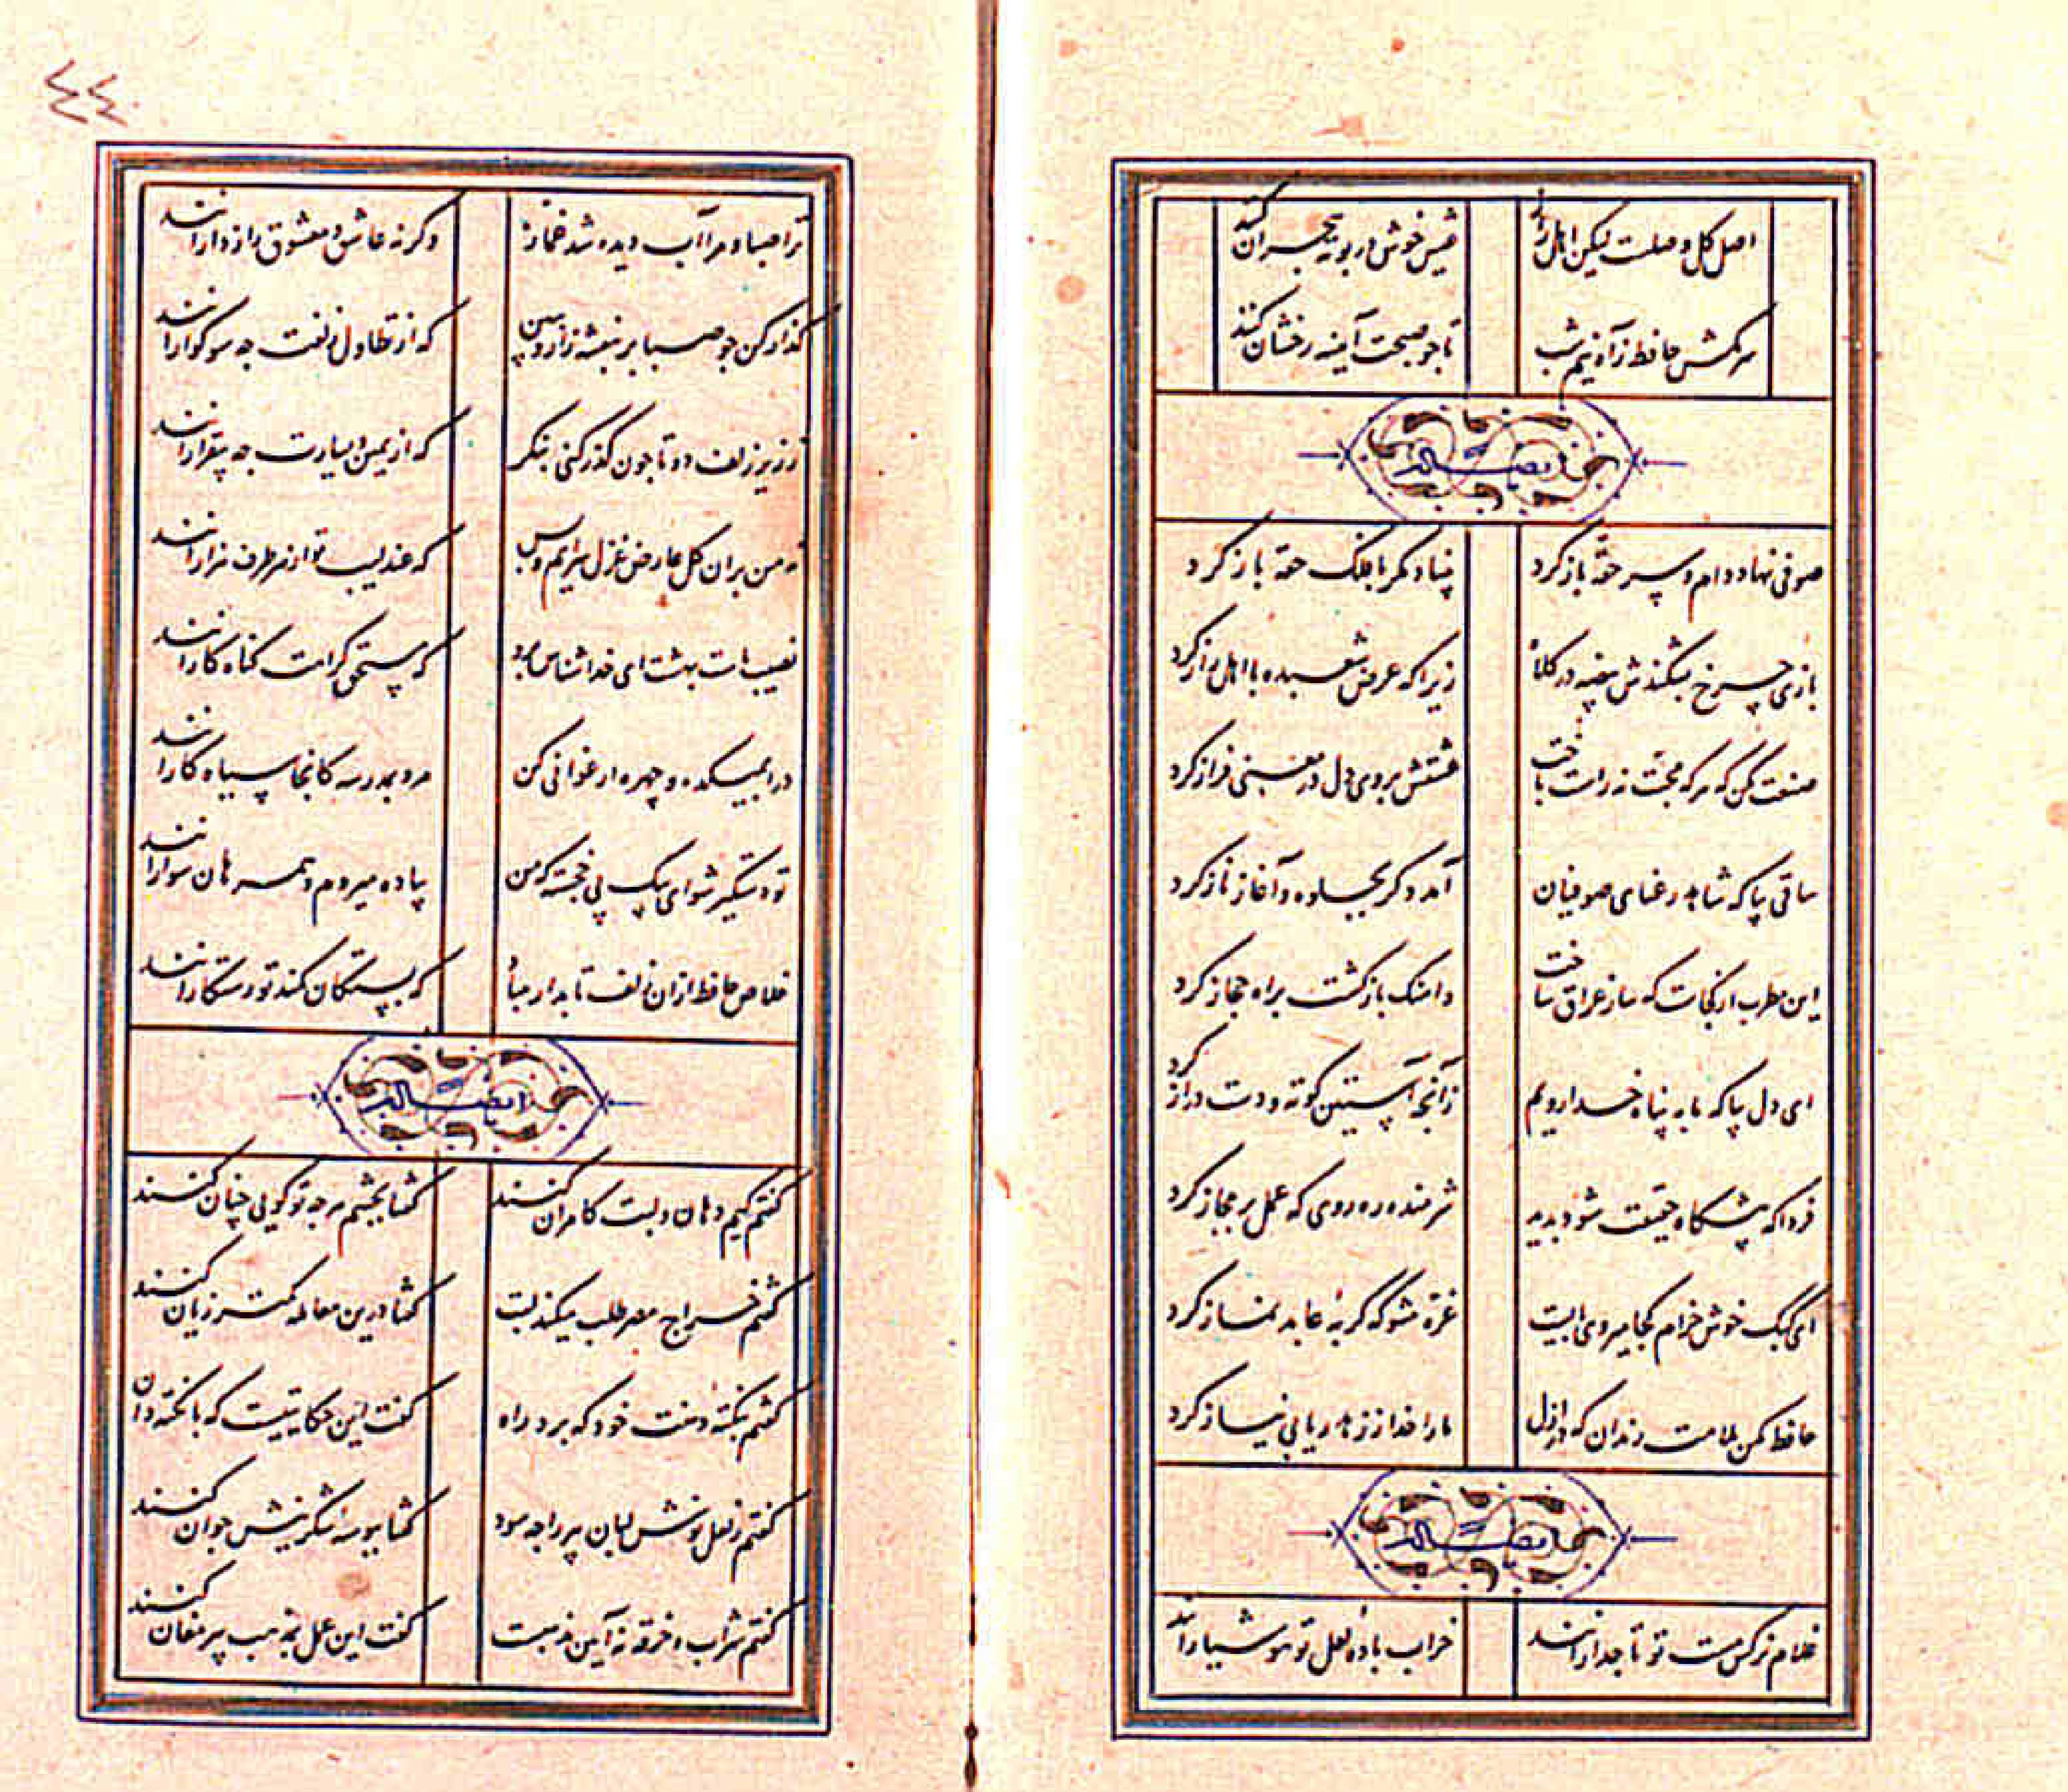 اصل کل وصلت لیکن اهل راز عیش خوش در بوته هجران کنند
سر مکش حافظ ز آه نیم شب تا جو صبحت آینه رخشان کنند
صوفی نهاد دام و سر حقه باز کرد بنیاد مکر با فلک حقه باز کرد
بازی چرخ بشکندش بیضه در کلاه زیرا که عرض شعبده با اهل راز کرد
صنعت مکن که هر که محبت نه راست باخت عشقش بروی دل در معنی فراز کرد
ساقی بیا که شاهد رعنای صوفیان آمد دکر بجلوه و آغاز ناز کرد
این مطرب از کجاست که ساز عراق ساخت و آهنک بازکشت براه حجاز کرد
ای دل بیا که ما به پناه خدا رویم زآنچه آستین کوته و دست دراز کرد
فردا که پیشکاه حقیقت شود پدید شرمنده ره روی که عمل بر مجاز کرد
ای کبک خوش خرام کجا میروی بایست غره مشو که کربهٔ عابد نماز کرد
حافظ مکن ملامت رندان که در ازل ما را خدا ز زهد ریا بی نیاز کرد
غلام نرکس مست تو تاجدارانند خراب بادهٔ لعل تو هوشیارانند
٤٤
ترا صبا و مرا آب دیده شد غماز وکرنه عاشق و معشوق رازدارانند
کذار کن جو صبا بر بنفشه زار و ببین که از تطاول زلفت جه سوکوارانند
ز زیر زلف دوتا جون کذر کنی بنکر که از یمین و یسارت جه بیقرارانند
نه من بران کل عارض غزل سرایم و بس که عندلیب تو از هر طرف هزارانند
نصیب ماست بهشت ای خداشناس برو که مستحق کرامت کناه کارانند
درا بمیکده و چهره ارغوانی کن مرو بمدرسه کانجا سیاه کارانند
تو دستکیر شو ای پیک پی خجسته که من پیاده میروم و همرهان سوارانند
خلاص حافظ ازان زلف تابدار مباد که بستکان کمند تو رستکارانند
کفتم کیم دهان و لبت کامران کنند کفتا بچشم هرجه تو کویی چنان کنند
کفتم خراج مصر طلب میکند لبت کفتا درین معامله کمتر زیان کنند
کفتم بنکتهٔ دهنت خود که برد راه کفت این حکایتیست که با نکته دان
کفتم ز لعل نوش لبان پیر را جه سود کفتا ببوسه شکرینش جوان کنند
کفتم شراب و خرقه نه آیین مذهبست کفت این عمل بمذهب پیر مغان کنند